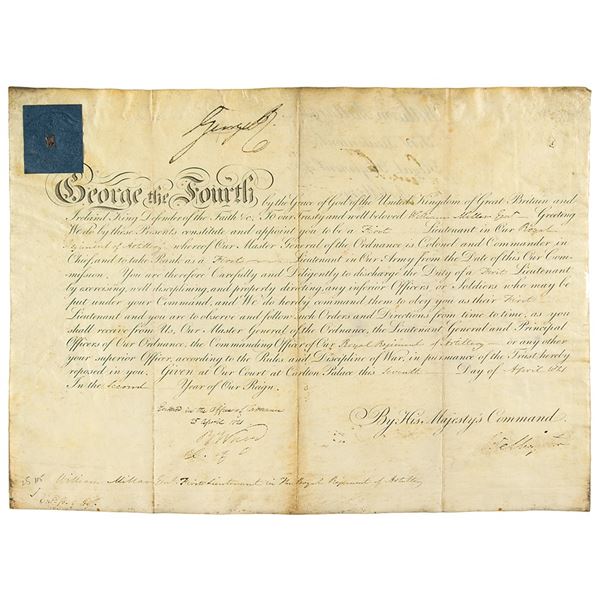 George R.
George the Fourth by the Grace of God of the United Kingdom of Great Britain and
Ireland King Defender of the Faith &c, To our trusty and well beloved William Millar Gent Greeting
We do by these Presents constitute and appoint you to be a First Lieutenant in Our Royal
Regiment of Artillery whereof Our Master General of the Ordnance is Colonel and Commander in
Chief and to take Rank as a First Lieutenant in Our Army from the Date of this Our Com-
mission. You are therefore Carefully and Diligently to discharge the Duty of a First Lieutenant
by exercising, well disciplining, and properly directing any inferior Officers or Soldiers who may be
put under your Command, and We do hereby command them to obey you as their First
Lieutenant and you are to observe and follow such Orders and Directions from time to time, as you
shall receive from Us, Our Master General of the Ordnance, the Lieutenant General and Principal
Officers of Our Ordnance, the Commanding Officer of Our Royal Regiment of Artillery or any other
your superior Officer, according to the Rules and Discipline of War, in pursuance of the Trust hereby
reposed in you. Given at Our Court at Carlton Palace this Seventh Day of April 1821
In the Second Year of Our Reign.
Entered in the Office of Ordnance
April 1821
By His Majesty's Command.
Wellington
William Millar Gent First Lieutenant in the Royal Regiment of Artillery